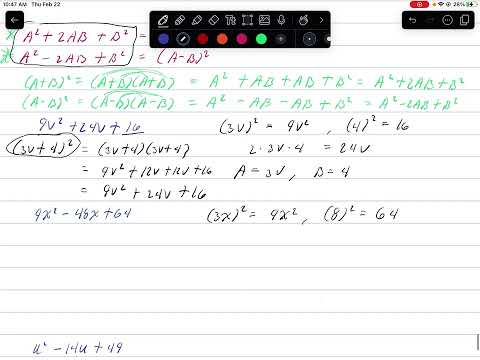 10:47 AM Thu Feb 22
A² + 2AB + B² =
A² - 2AB + B² = (A-B)²
(A+B)² = (A+B)(A+B) = A² + AB + AB + B² = A² + 2AB + B²
(A-B)² = (A-B)(A-B) = A² - AB - AB + B² = A² - 2AB + B²
9v² + 24v + 16 (3v)² = 9v² , (4)² = 16
(3v+4)² = (3v+4)(3v+4) 2·3v·4 = 24v
= 9v² + 12v + 12v + 16 A = 3v , B = 4
= 9v² + 24v + 16
9x² - 48x + 64 (3x)² = 9x² , (8)² = 64
u² - 14u + 49